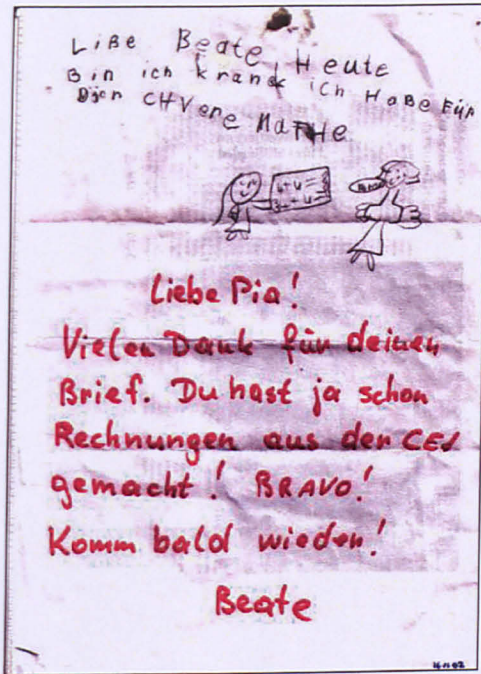 LiBe Beate Heute
Bin ich kranck ich HaBe Für
Djch CHVere MaTHe
4+4=8
BRAVO
Liebe Pia!
Vielen Dank für deinen
Brief. Du hast ja schon
Rechnungen aus der CEJ
gemacht! BRAVO!
Komm bald wieder!
Beate